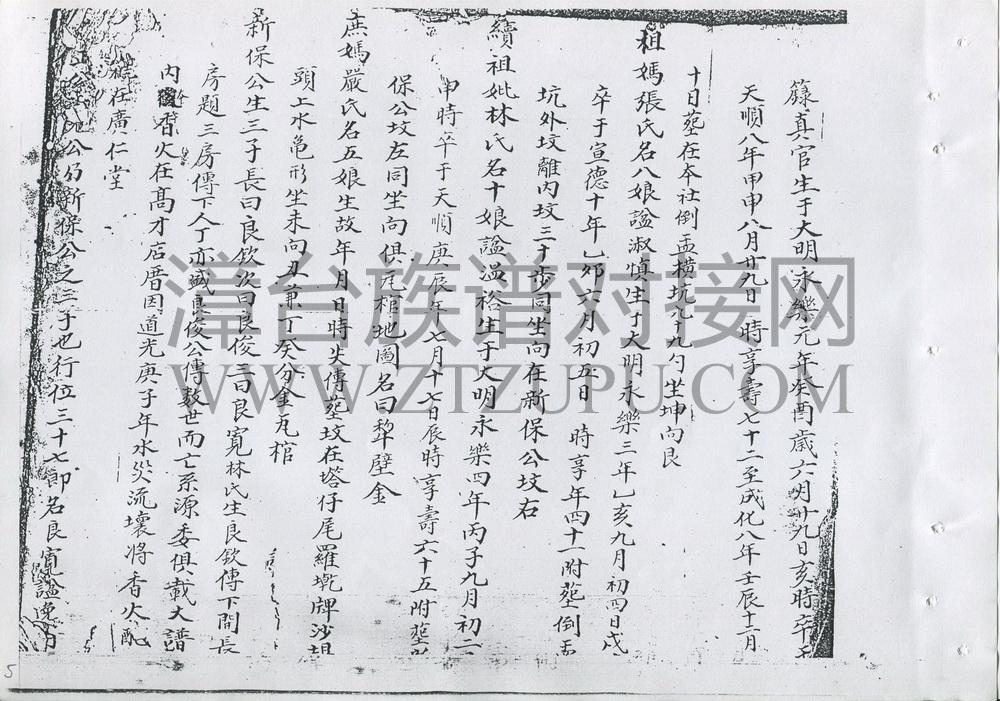 籙真官生于大明永樂元年癸酉歲六月廿九日亥時卒于
天順八年甲申八月廿九日 時享壽七十二至成化八年壬辰十二月
十日塟在本社倒盂橫坑九十九勺坐坤向艮
祖媽張氏名八娘謚淑慎生于大明永樂三年乙亥九月初四日戌
卒于宣德十年乙夘六月初五日 時享年四十一附塟倒盂
坑外坟離內坟三十步同坐向在新保公坟右
續祖妣林氏名十娘謚温裕生于大明永樂四年丙子九月初二
申時卒于天順庚辰年七月十七日辰時享壽六十五附塟
保公坟左同坐向俱瓦棺地圖名曰犂壁金
庶媽嚴氏名五娘生故年月日時失傳塟坟在塔仔尾羅墘牌沙垻
頭上水亀形坐未向丑兼丁癸分金瓦棺
新保公生三子長曰良欽次曰良俊三曰良寛林氏生良欽傳下開長
房題三房傳下人丁亦盛良俊公傳数世而亡系源委俱載大譜
內 香火在髙才店厝因道光庚子年水災流壞將香火配
在廣仁堂
公乃新保公之三子也行位三十七郎名良寛謚逸
漳台族谱对接网
WWW.ZTZUPU.COM
5